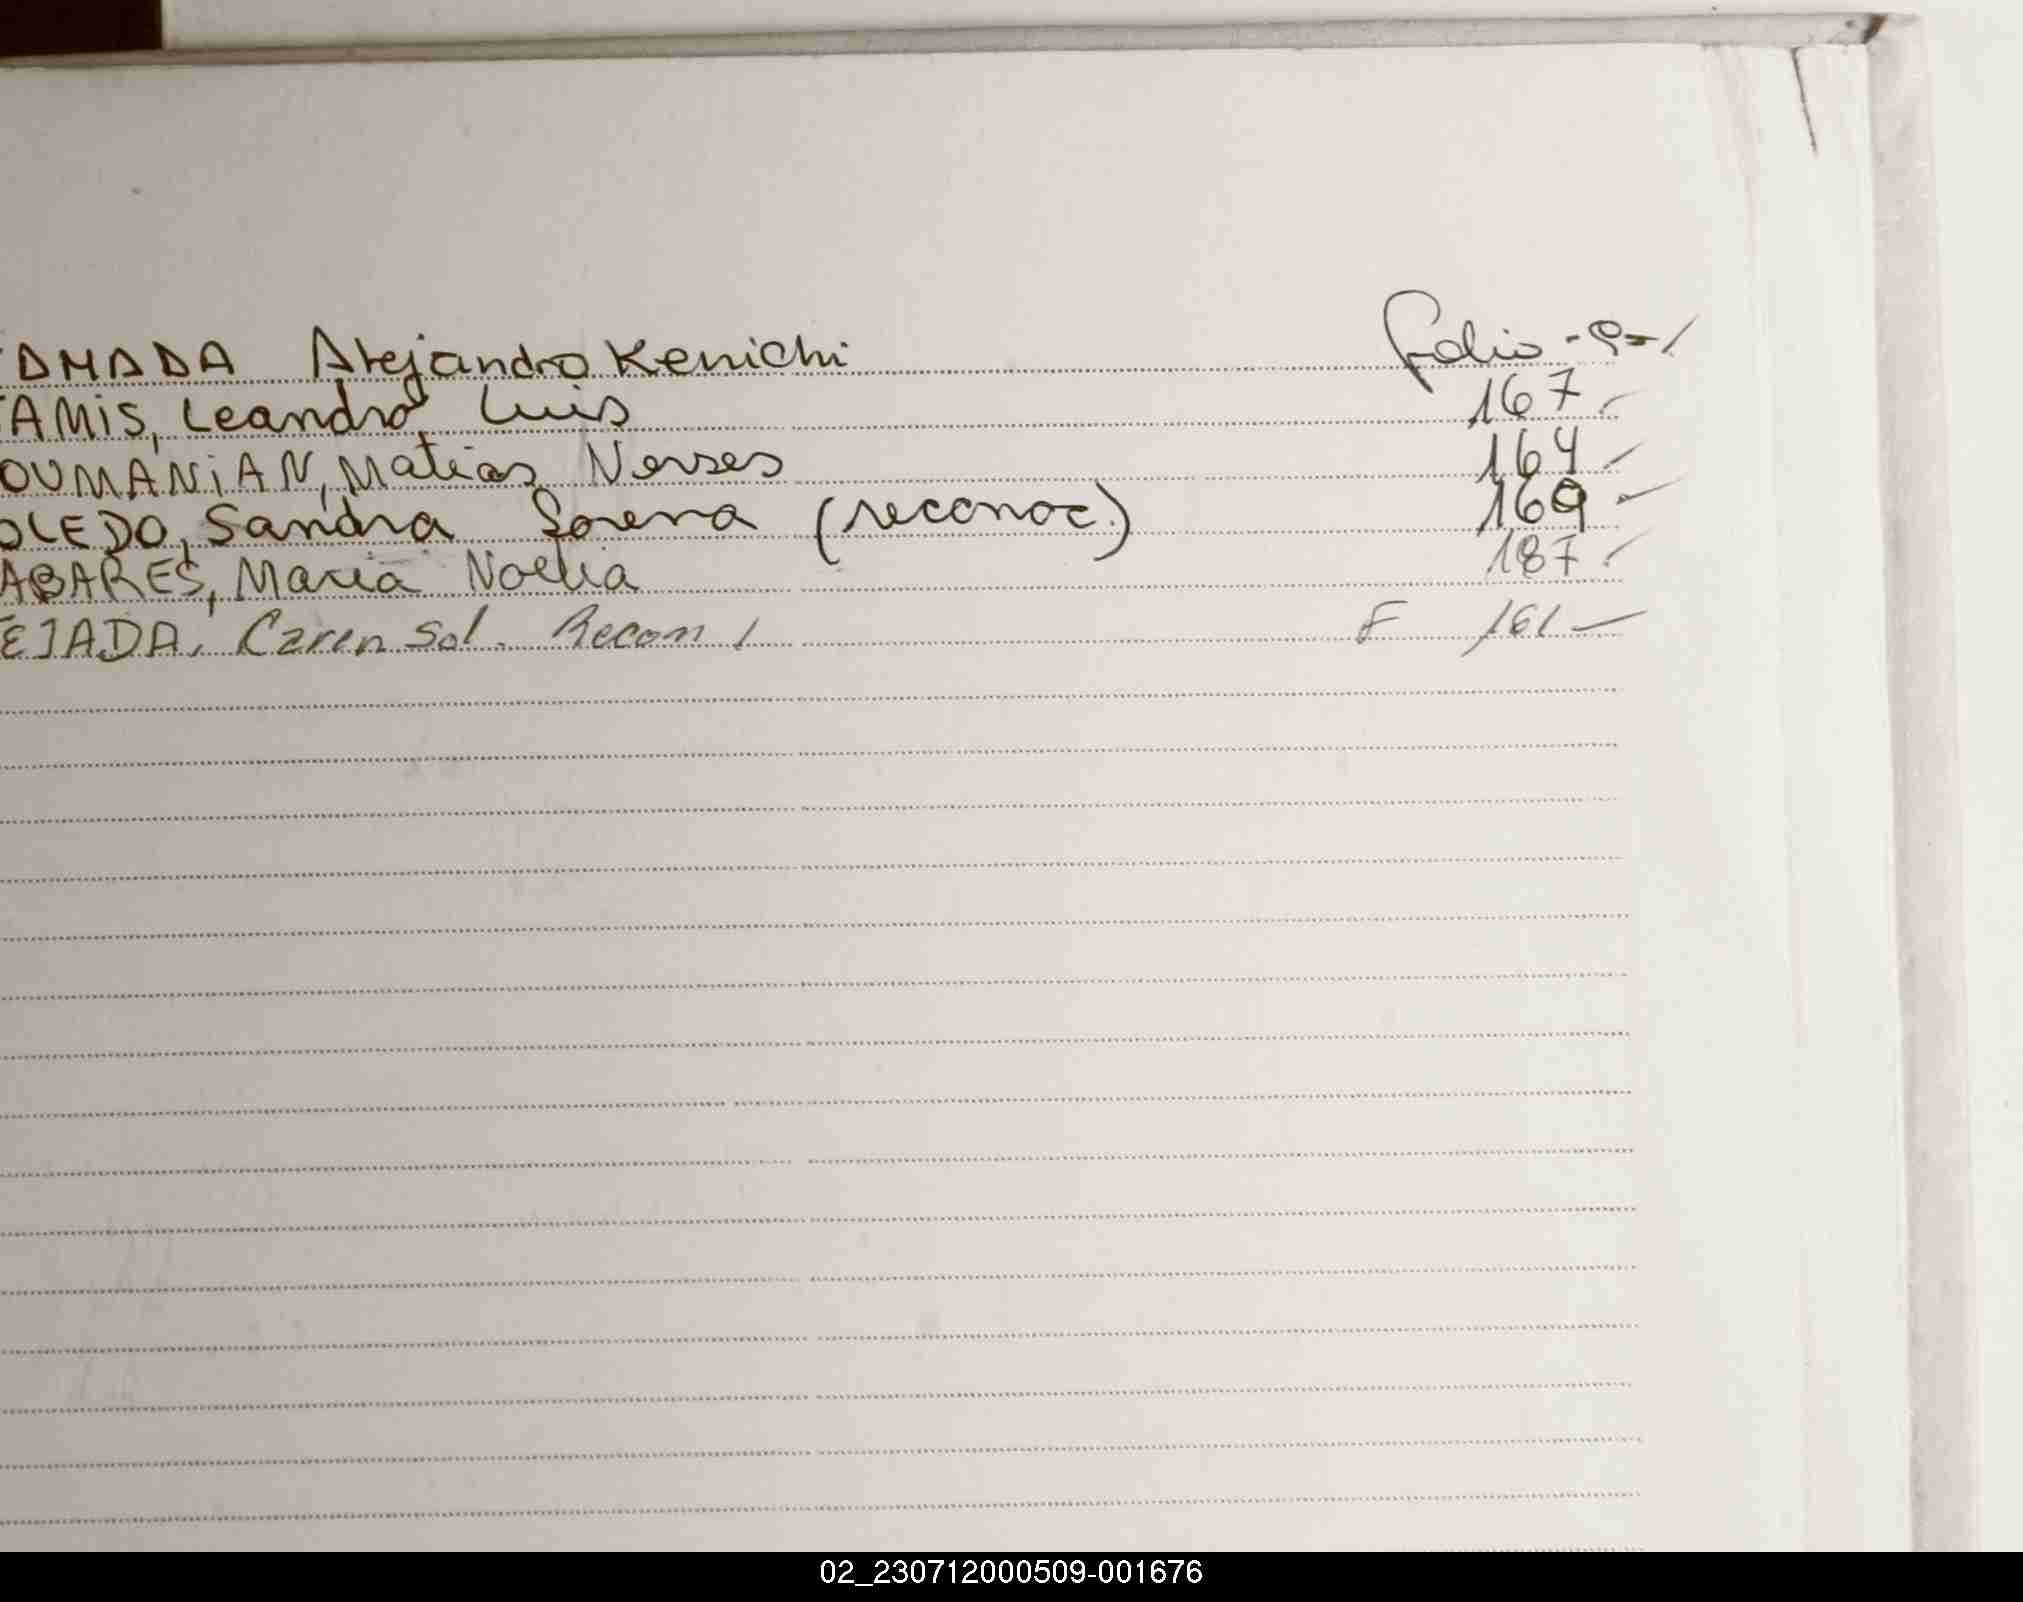 TAMADA Alejandro Kenichi folio - 9 - /
TAMiS, Leandro Luis 167 -
OUMANiAN, Matias Nerses 164 -
OLEDO, Sandra Lorena (reconoc.) 169 -
ABARES, Maria Noelia 187 -
TEJADA, Caren Sol. Recon / F 161 -
02_230712000509-001676